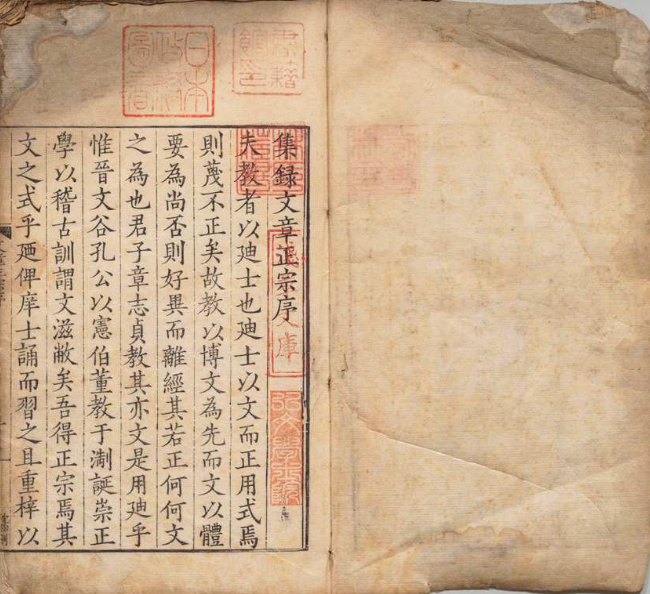 集録文章正宗序
夫教者以廸士也廸士以文而正用式焉
則蔑不正矣故教以博文為先而文以體
要為尚否則好異而離經其若正何何文
之為也君子章志貞教其亦文是用廸乎
惟晉文谷孔公以憲伯董教于淛誕崇正
學以稽古訓謂文滋敝矣吾得正宗焉其
文之式乎廼俾庠士誦而習之且重梓以
日本
書籍
庫